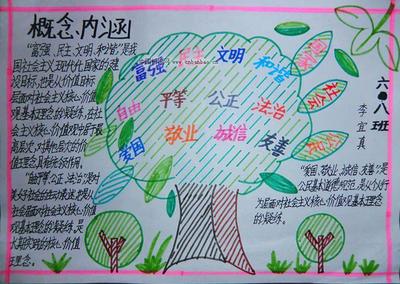 概念、内涵
"富强、民主、文明、和谐"是我
国社会主义现代化国家的建
设目标,也是从价值目标
层面对社会主义核心价值
观基本理念的凝练,在社会
主义核心价值观中居于最
高层次,对其他层次的价
值理念具有统领作用。
"自由、平等、公正、法治"是对
美好社会的生动表述,也是从
社会层面对社会主义核心价值
观基本理念的凝练。
值理念。
富强
民主
文明
和谐
自由
平等
公正
法治
爱国
敬业
诚信
友善
国家
社会
公民
六·八班
李宜真
"爱国、敬业、诚信、友善"是
公民基本道德规范,是从个人行
为层面对社会主义核心价值观基本理念
的凝练。